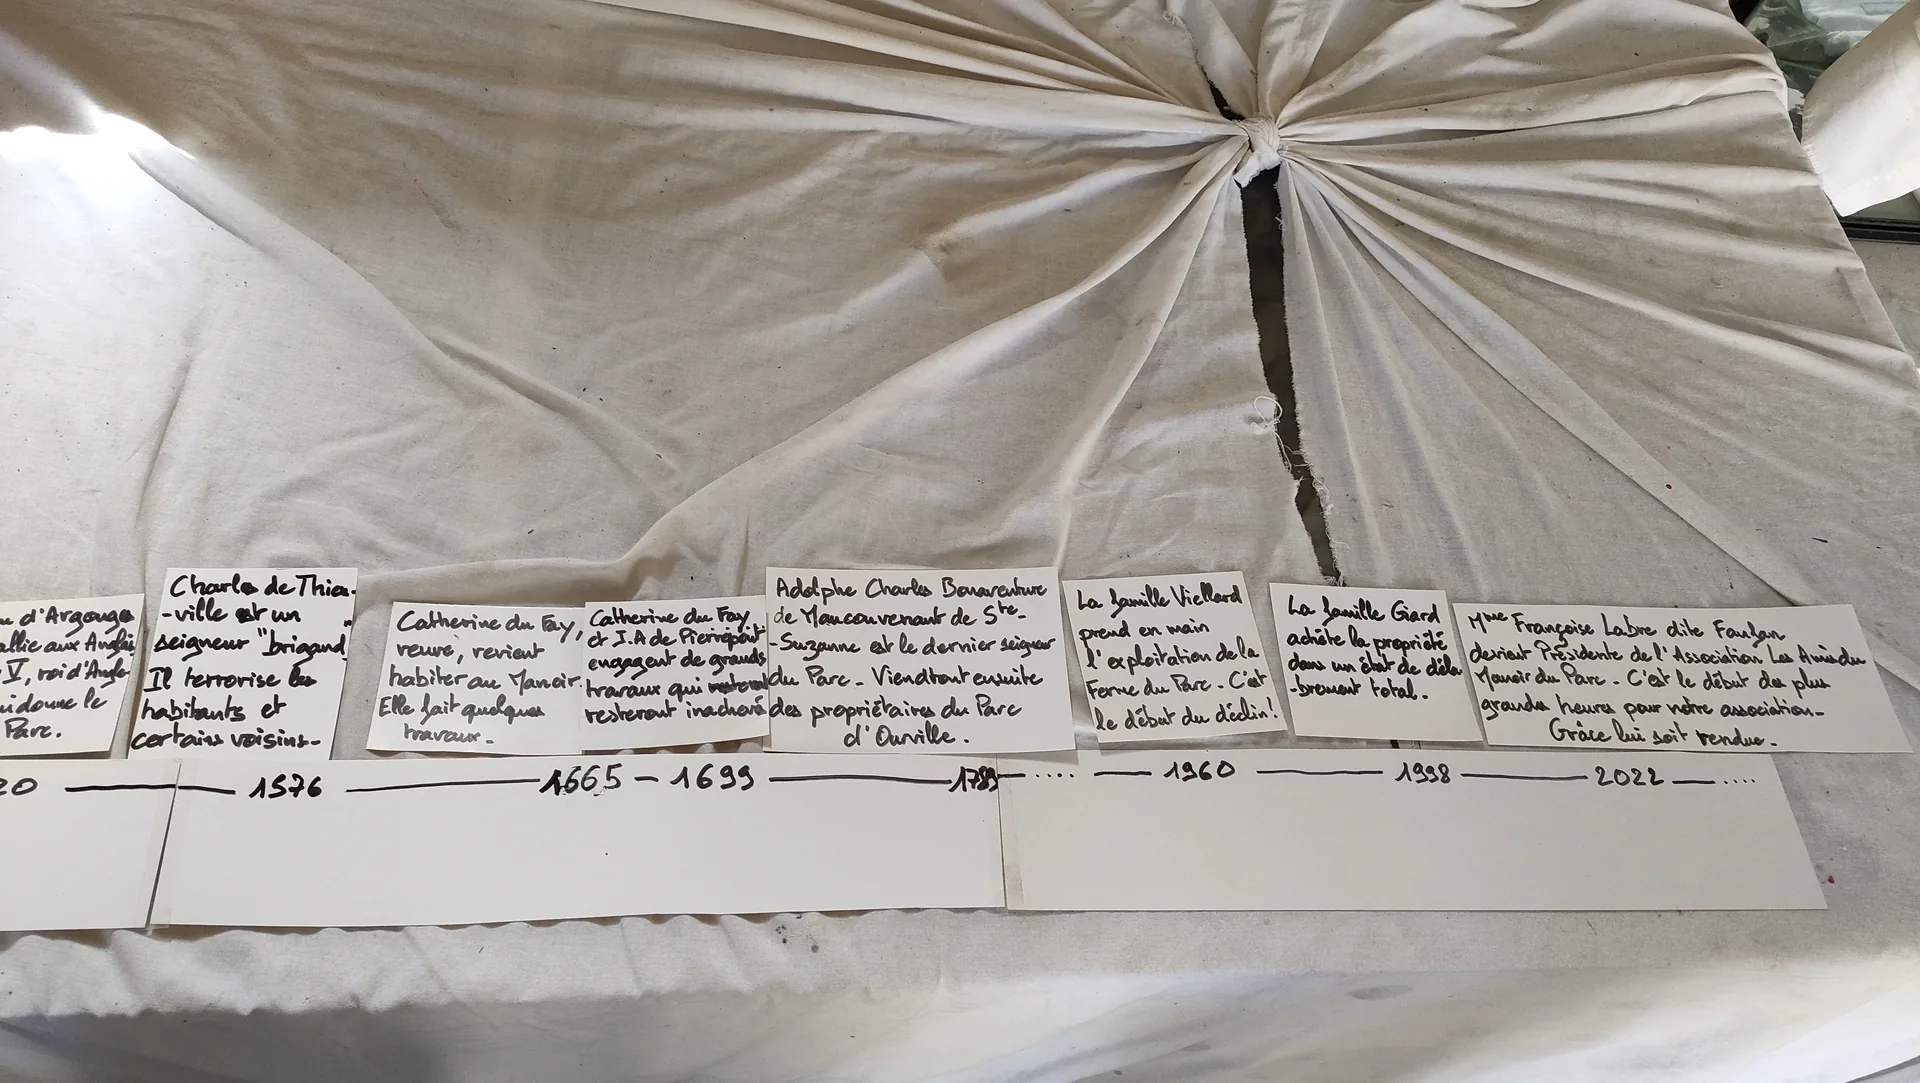 u d'Argouges
allie aux Anglais
V, roi d'Angle
ui donne le
Parc.
Charles de Thieu-
-ville est un
seigneur "brigand".
Il terrorise les
habitants et
certains voisins-
Catherine du Fay,
veuve, revient
habiter au Manoir
Elle fait quelques
travaux.
Catherine du Fay
et J.A de Pierrepont
engagent de grands
travaux qui
resteront inachevés
Adolphe Charles Bonaventure
de Maucouvenant de Ste-
-Suzanne est le dernier seigneur
du Parc. Viendront ensuite
des propriétaires du Parc
d'Ourville.
La famille Viellard
prend en main
l'exploitation de la
Ferme du Parc. C'est
le début du déclin!
La famille Giard
achète la propriété
dans un état de déla
-brement total.
Mme Françoise Labre dite Fanfan
devient Présidente de l'Association Les Amis du
Manoir du Parc. C'est le début des plus
grandes heures pour notre association-
Grâce lui soit rendue.
20 — 1576 — 1665 — 1699 — 1789 — .... — 1960 — 1998 — 2022 — ....